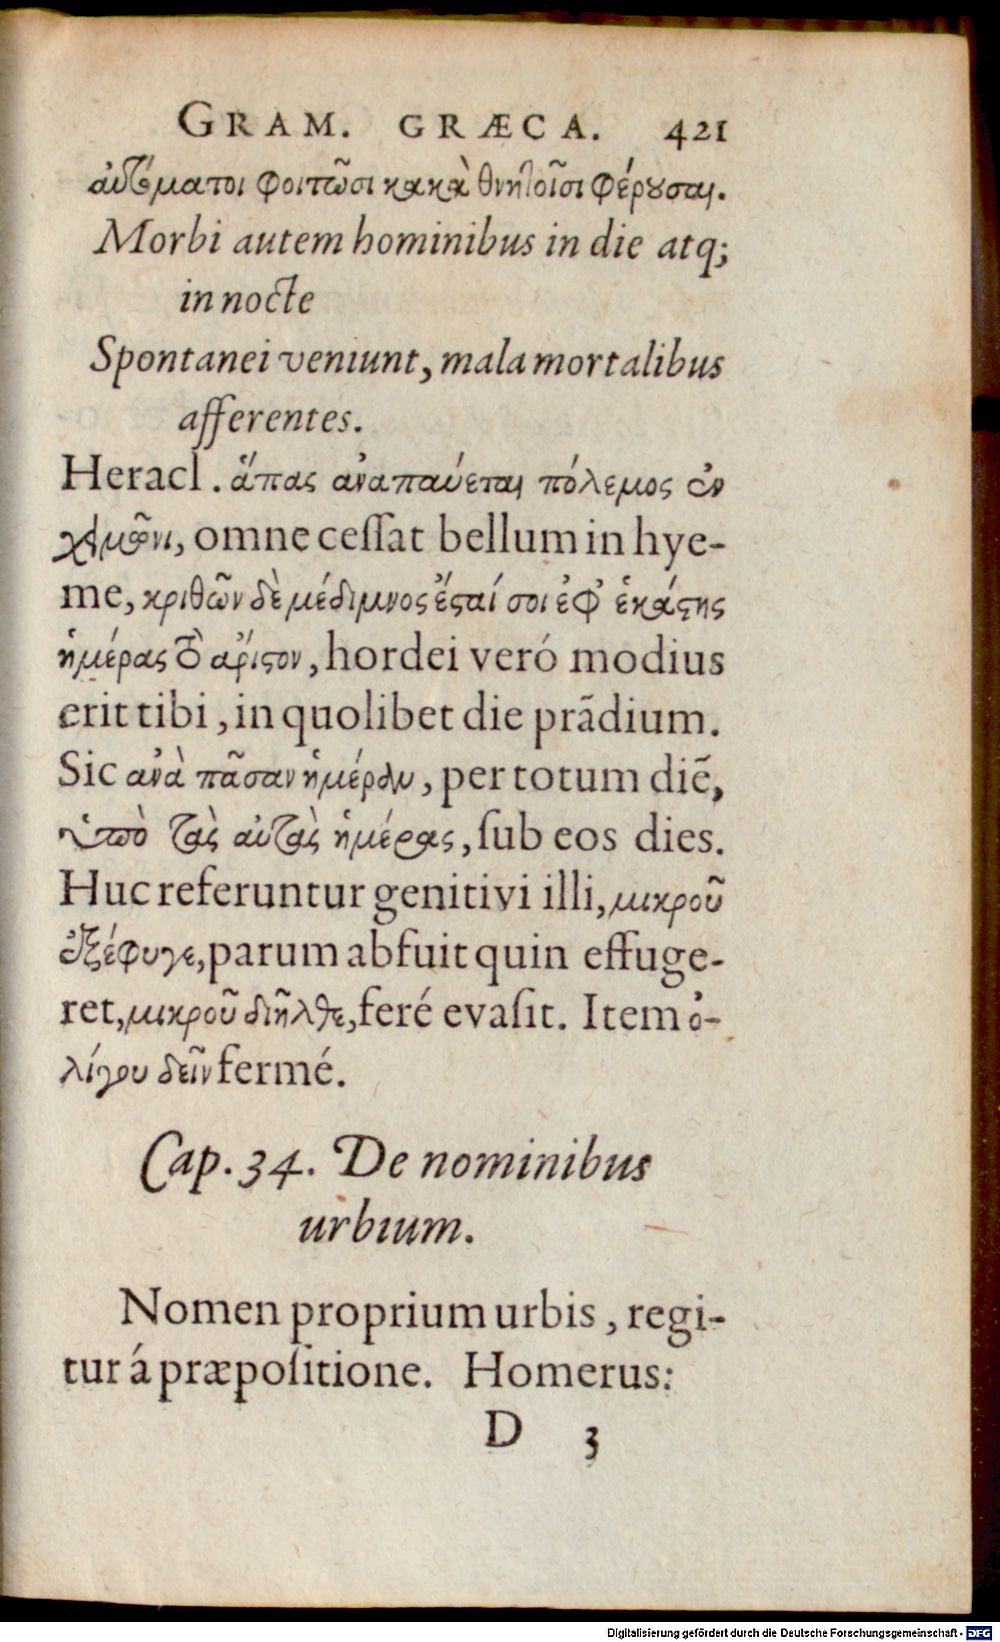 GRAM. GRÆCA. 421
αὐτόματοι φοιτῶσι κακὰ θνητοῖσι φέρουσαι.
Morbi autem hominibus in die atq;
in nocte
Spontanei veniunt, mala mortalibus
afferentes.
Heracl. ἅπας ἀναπαύεται πόλεμος ἐν
χειμῶνι, omne cessat bellum in hye-
me, κριθῶν δὲ μέδιμνος ἔσται σοι ἐφ' ἑκάστης
ἡμέρας τὸ ἄριστον, hordei veró modius
erit tibi, in quolibet die prãdium.
Sic ἀνὰ πᾶσαν ἡμέραν, per totum diẽ,
ὑπὸ τὰς αὐτὰς ἡμέρας, sub eos dies.
Huc referuntur genitivi illi, μικροῦ
ἐξέφυγε, parum abfuit quin effuge-
ret, μικροῦ διῆλθε, feré evasit. Item ὀ-
λίγου δεῖν fermé.
Cap. 34. De nominibus
urbium.
Nomen proprium urbis, regi-
tur á præpositione. Homerus:
D 3
Digitalisierung gefördert durch die Deutsche Forschungsgemeinschaft - DFG